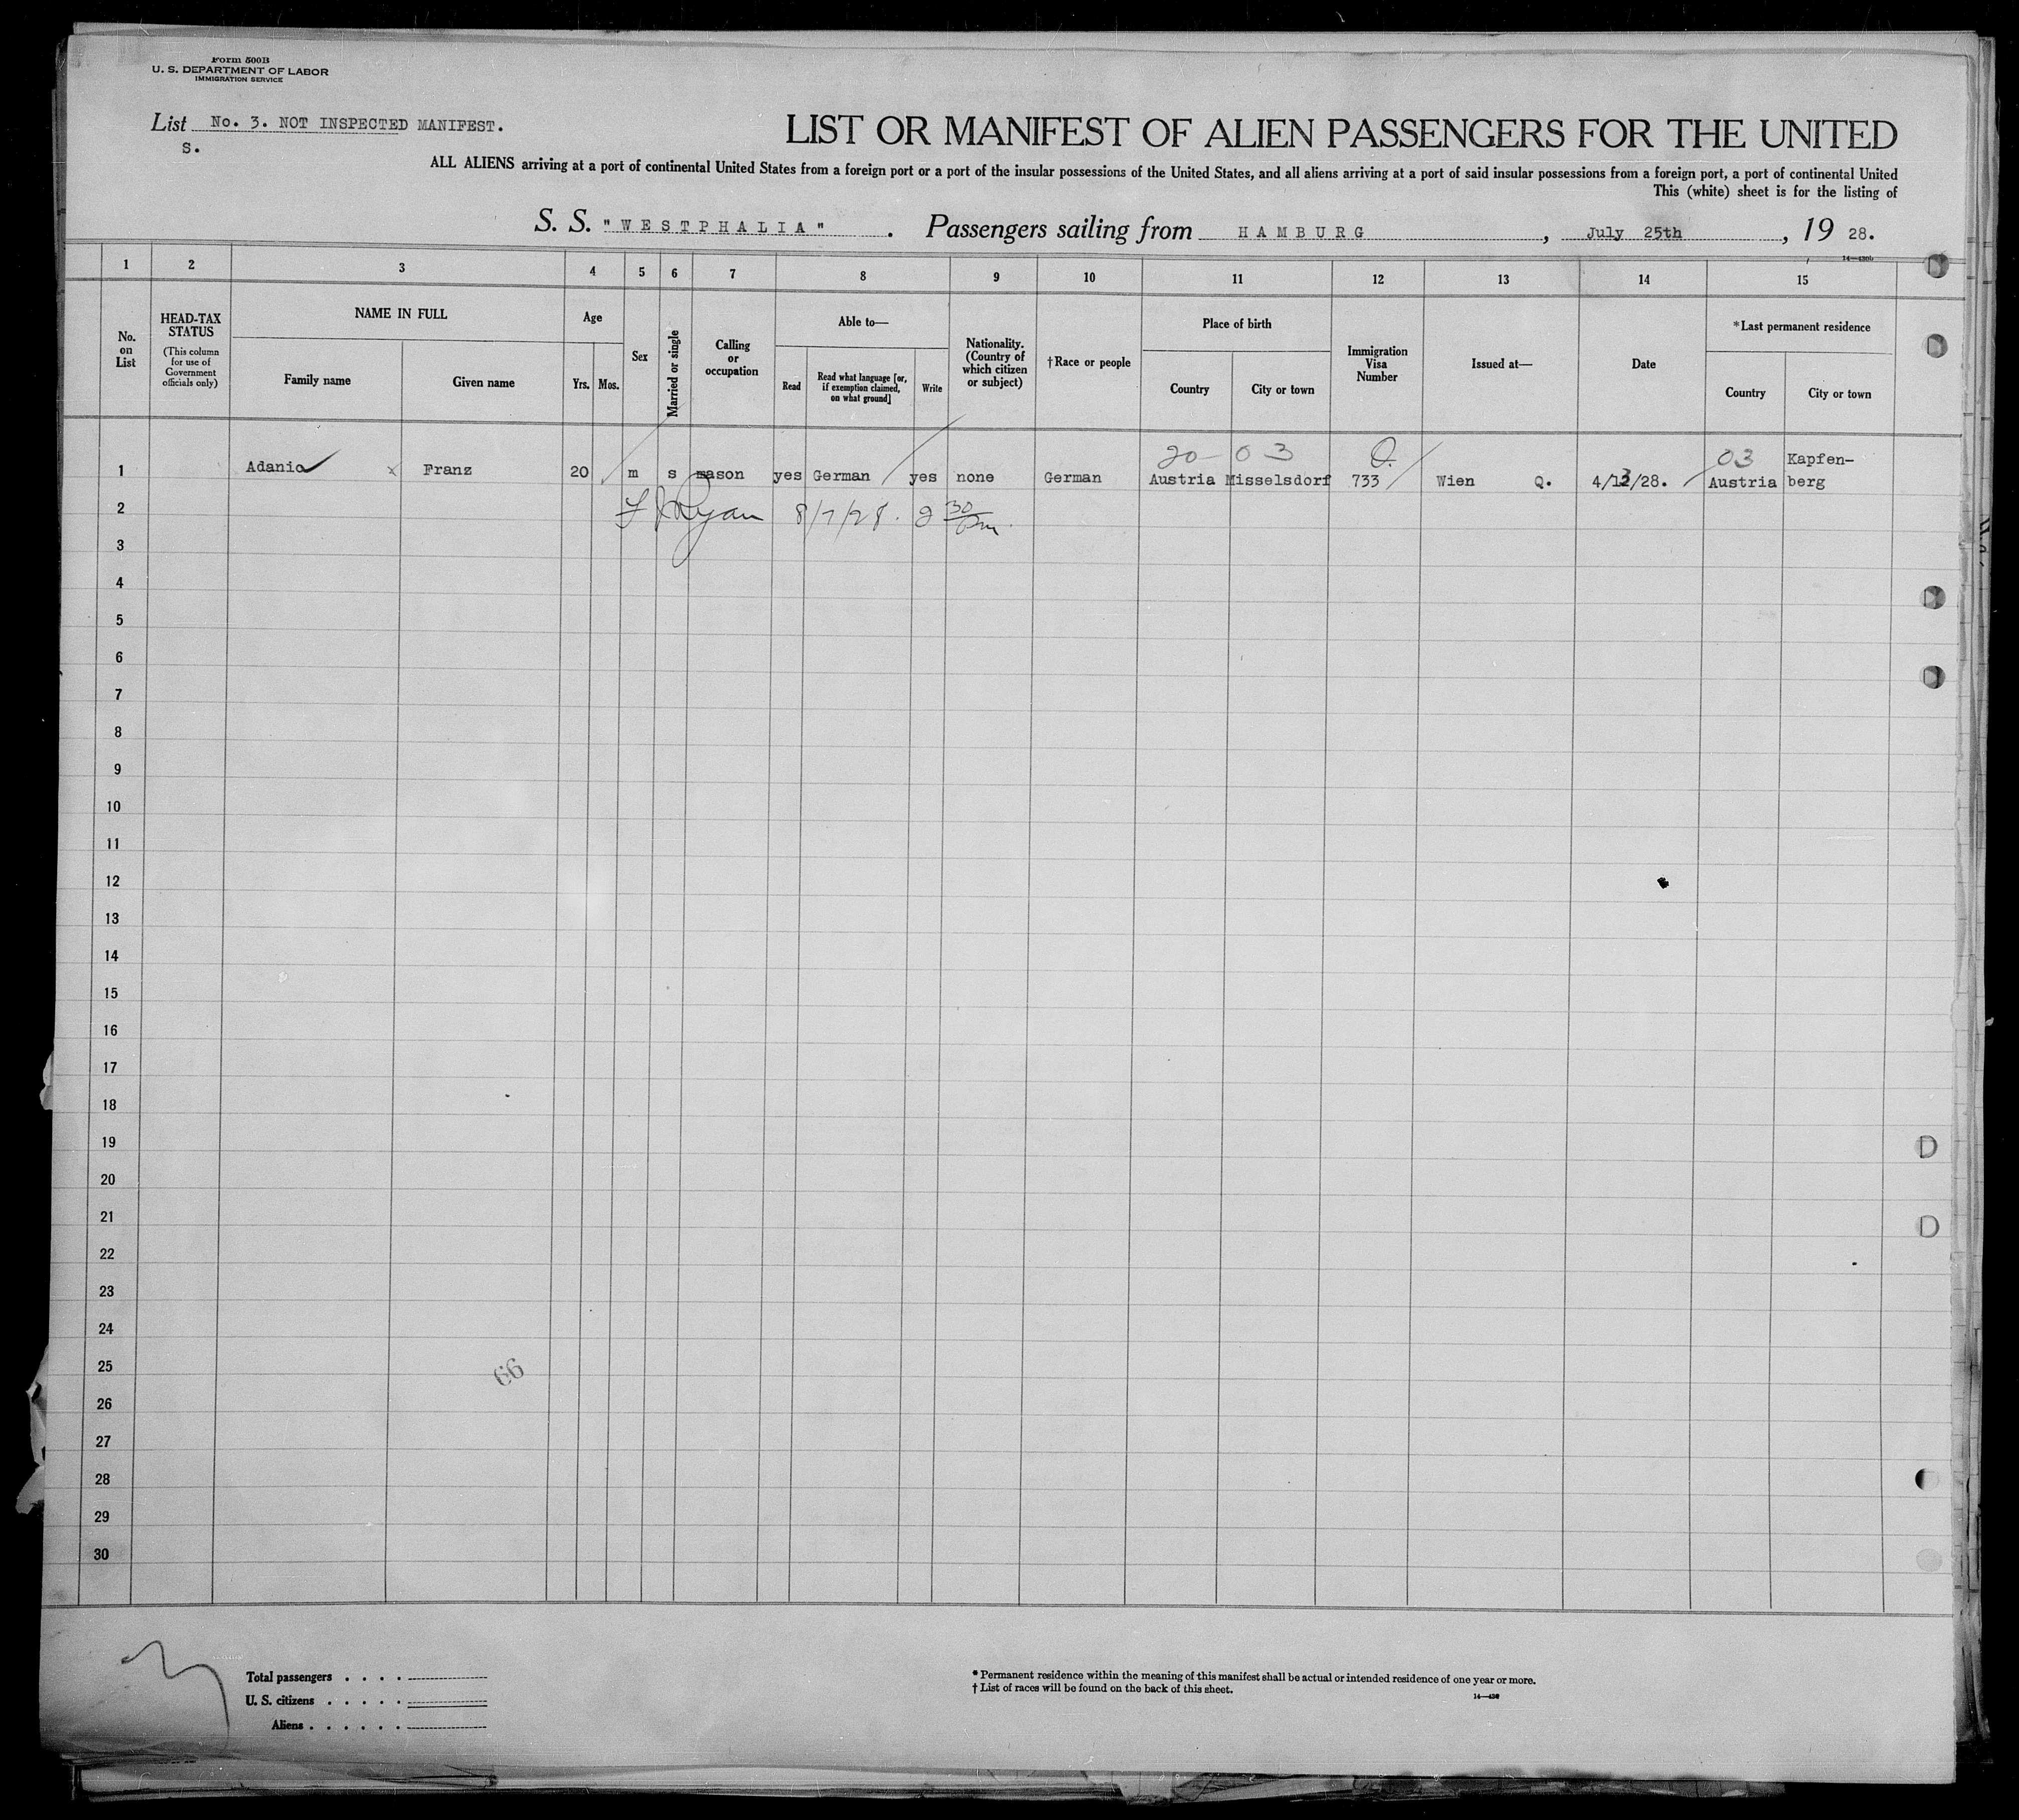 Form 500B
U. S. DEPARTMENT OF LABOR
IMMIGRATION SERVICE
List No. 3. NOT INSPECTED MANIFEST.
S.
LIST OR MANIFEST OF ALIEN PASSENGERS FOR THE UNITED
ALL ALIENS arriving at a port of continental United States from a foreign port or a port of the insular possessions of the United States, and all aliens arriving at a port of said insular possessions from a foreign port, a port of continental United
This (white) sheet is for the listing of
S. S. "WESTPHALIA". Passengers sailing from HAMBURG, July 25th, 1928.
1 2 3 4 5 6 7 8 9 10 11 12 13 14 15
No. on List
HEAD-TAX STATUS
(This column for use of Government officials only)
NAME IN FULL
Family name
Given name
Age
Yrs.
Mos.
Sex
Married or single
Calling or occupation
Able to—
Read
Read what language [or, if exemption claimed, on what ground]
Write
Nationality. (Country of which citizen or subject)
†Race or people
Place of birth
Country
City or town
Immigration Visa Number
Issued at—
Date
*Last permanent residence
Country
City or town
20 03 Q. 03
1 Adanic Franz 20 m s mason yes German yes none German Austria Misselsdorf 733 Wien Q. 4/13/28. Austria Kapfen-berg
2 F J Ryan 8/7/28. 2 30 pm
3
4
5
6
7
8
9
10
11
12
13
14
15
16
17
18
19
20
21
22
23
24
25
26
27
28
29
30
66
Total passengers . . . .
U. S. citizens . . . . .
Aliens . . . . . .
* Permanent residence within the meaning of this manifest shall be actual or intended residence of one year or more.
† List of races will be found on the back of this sheet.